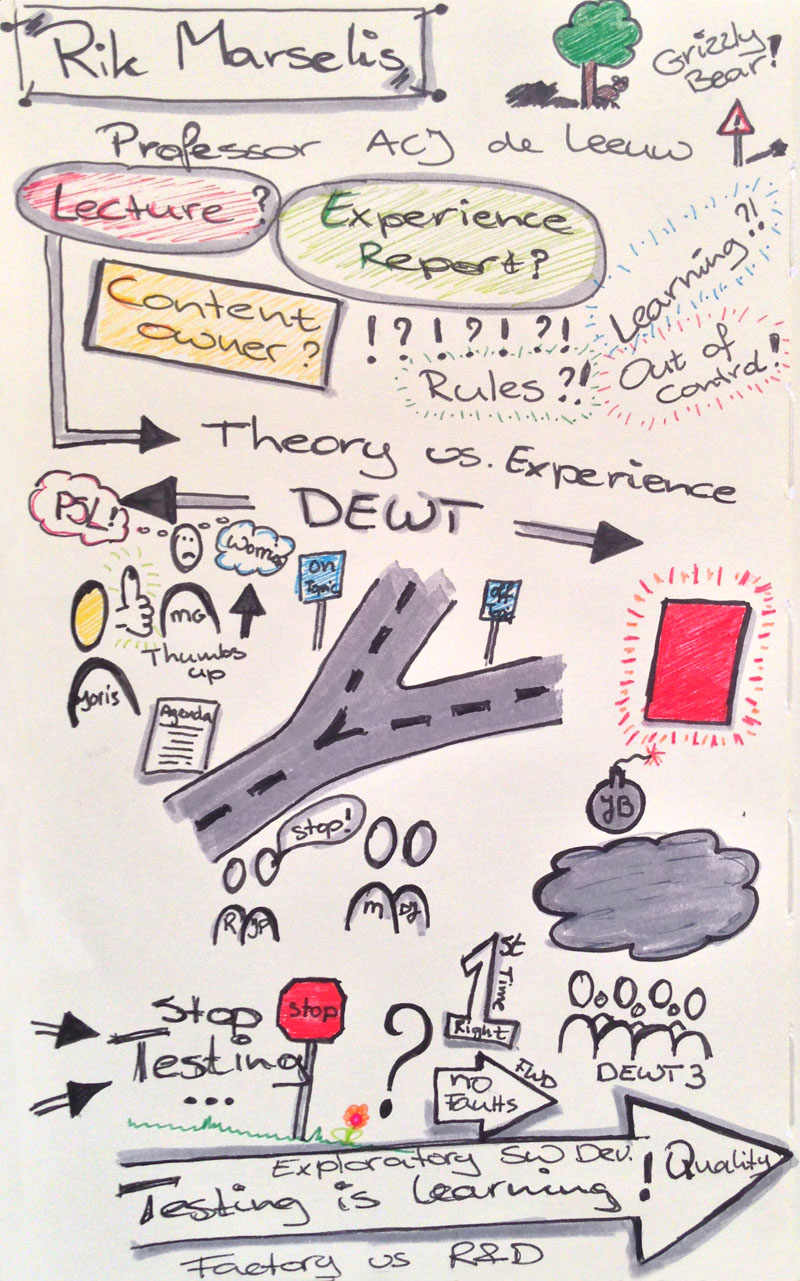 Rik Marselis
Grizzly
Bear!
!
Professor ACJ de Leeuw
Lecture?
Experience
Report?
Learning?!
Content
owner?
!?!?!?!
Rules?!
Out of
control!
Theory vs. Experience
PSL!
DEWT
Worries
on
Topic
off
Topic
MG
Thumbs
up
Joris
Agenda
JB
Stop!
R JP
M DJ
1st
Time
Right
Stop
Testing
...
Stop
?
No
Faults
FWD
DEWT 3
Exploratory SW Dev.
Testing is Learning!
Quality
Factory vs R&D